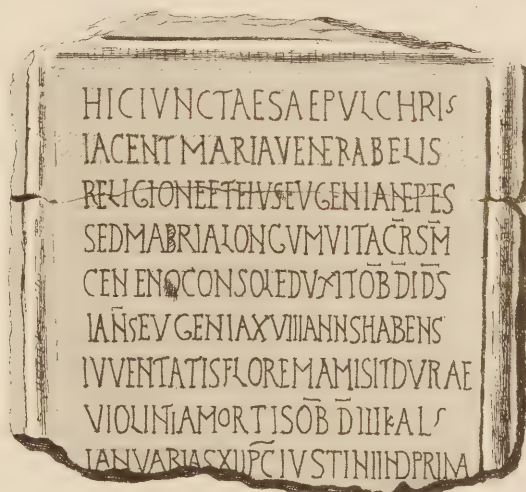 HIC IVNCTAE SAEPVLCHRIS
IACENT MARIA VENERABELIS
RELIGIONE ET EIVS EVGENIA NEPTES
SED MABRIA LONGVM VITAC̄R̄SM̄
CEN ENO CONSOLE DVXIT OB̄ D̄ ID̄S
IAN̄S EVGENIA XVIIII ANNS HABENS
IVVENTATIS FLOREM AMISIT DVRAE
VIOLINTIA MORTIS OB̄ D̄ IIII KALS
IANVARIAS XII P̄C̄ IVSTINI IND PRIMA